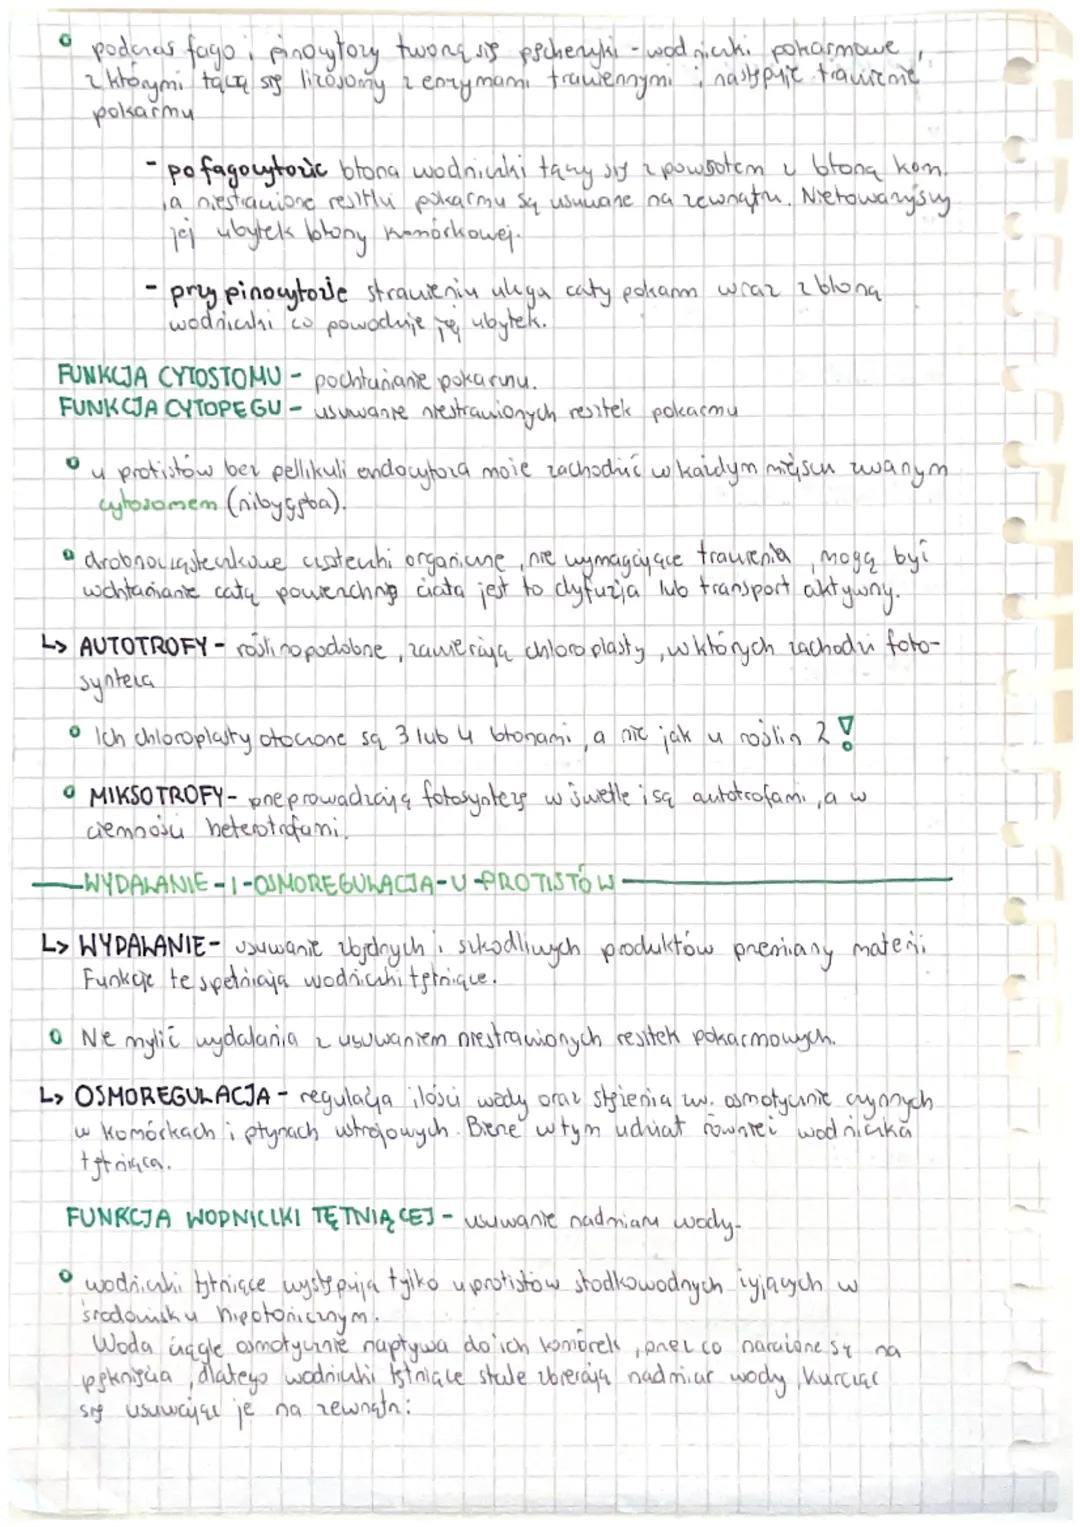 podczas fago i pinocytozy tworzą się pęcherzyki - wodniczki pokarmowe,
z którymi łączą się lizosomy z enzymami trawiennymi i następuje trawienie
pokarmu
- po fagocytozie błona wodniczki łączy się z powrotem z błoną kom.
,a niestrawione resztki pokarmu są usuwane na zewnątrz. Nie towarzyszy
jej ubytek błony komórkowej.
- przy pinocytozie strawieniu ulega cały pokarm wraz z błoną
wodniczki co powoduje jej ubytek.
FUNKCJA CYTOSTOMU - pochłanianie pokarmu.
FUNKCJA CYTOPEGU - usuwanie niestrawionych resztek pokarmu
u protistów bez pellikuli endocytoza może zachodzić w każdym miejscu zwanym
cytosomem (nibygęba).
drobnocząsteczkowe cząsteczki organiczne, nie wymagające trawienia, mogą być
wchłaniane całą powierzchnią ciała jest to dyfuzja lub transport aktywny.
↳ AUTOTROFY - roślinopodobne, zawierają chloroplasty, w których zachodzi foto-
synteza
Ich chloroplasty otoczone są 3 lub 4 błonami, a nie jak u roślin 2!
MIKSOTROFY - przeprowadzają fotosyntezę w świetle i są autotrofami, a w
ciemności heterotrofami.
WYDALANIE - I - OSMOREGULACJA - U - PROTISTÓW
↳ WYDALANIE - usuwanie zbędnych i szkodliwych produktów przemiany materii
Funkcje te spełniają wodniczki tętniące.
Nie mylić wydalania z usuwaniem niestrawionych resztek pokarmowych.
↳ OSMOREGULACJA - regulacja ilości wody oraz stężenia zw. osmotycznie czynnych
w komórkach i płynach ustrojowych. Bierze w tym udział również wodniczka
tętniąca.
FUNKCJA WODNICZKI TĘTNIĄCEJ - usuwanie nadmiaru wody.
wodniczki tętniące występują tylko u protistów słodkowodnych żyjących w
środowisku hipotonicznym.
Woda ciągle osmotycznie napływa do ich komórek, przez co narażone są na
pęknięcia, dlatego wodniczki tętniące stale zbierają nadmiar wody, kurcząc
się usuwając je na zewnątrz: